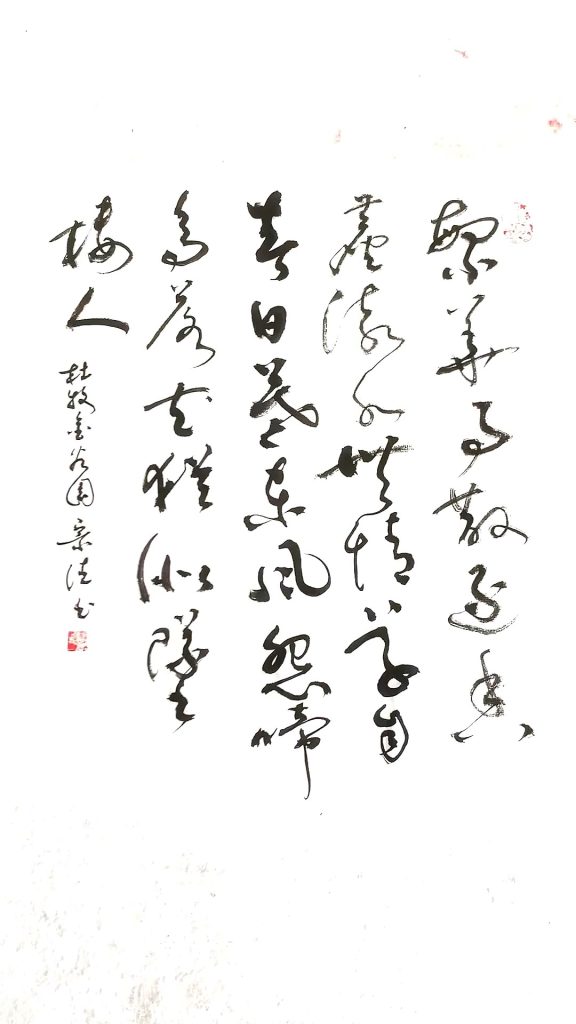 繁華事散逐香
塵流水無情草自
春日暮東風怨啼
鳥落花猶似墜
樓人
杜牧金谷園 书